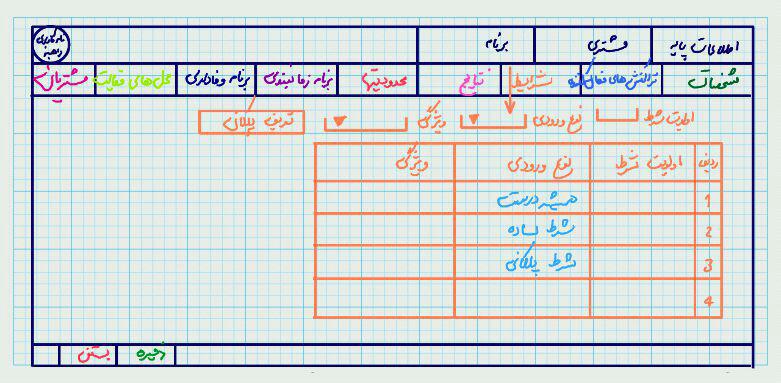 اطلاعات پایه مشتری برنامه
مشخصات تراکنش‌های فعال‌کننده شرایط نتایج محدودیتها برنامه زمانبندی برنامه وفاداری محل‌های فعالیت مشتریان
اولویت شرط نوع ورودی ویژگی تعریف پلکانی
ردیف اولویت شرط نوع ورودی ویژگی
1 همیشه درست
2 شرط ساده
3 شرط پلکانی
4
ذخیره بستن